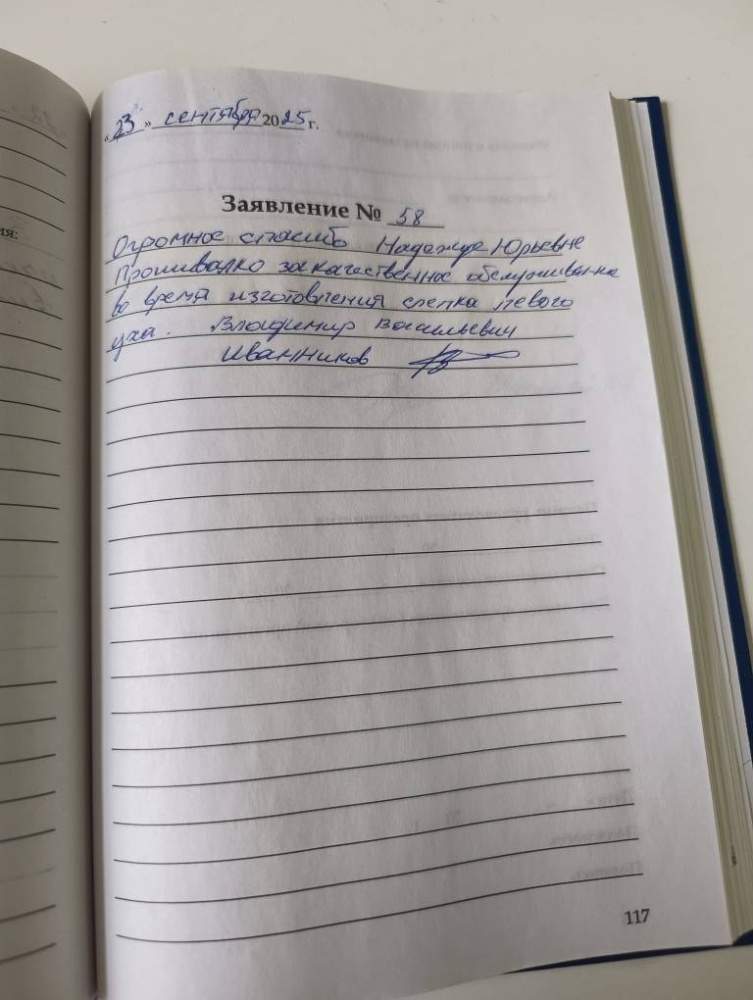 «23» сентября 2025 г.
Заявление № 58
Огромное спасибо Надежде Юрьевне
Прошивалко за качественное обслуживание
во время изготовления слепка левого
уха. Владимир Васильевич
Иванников
117